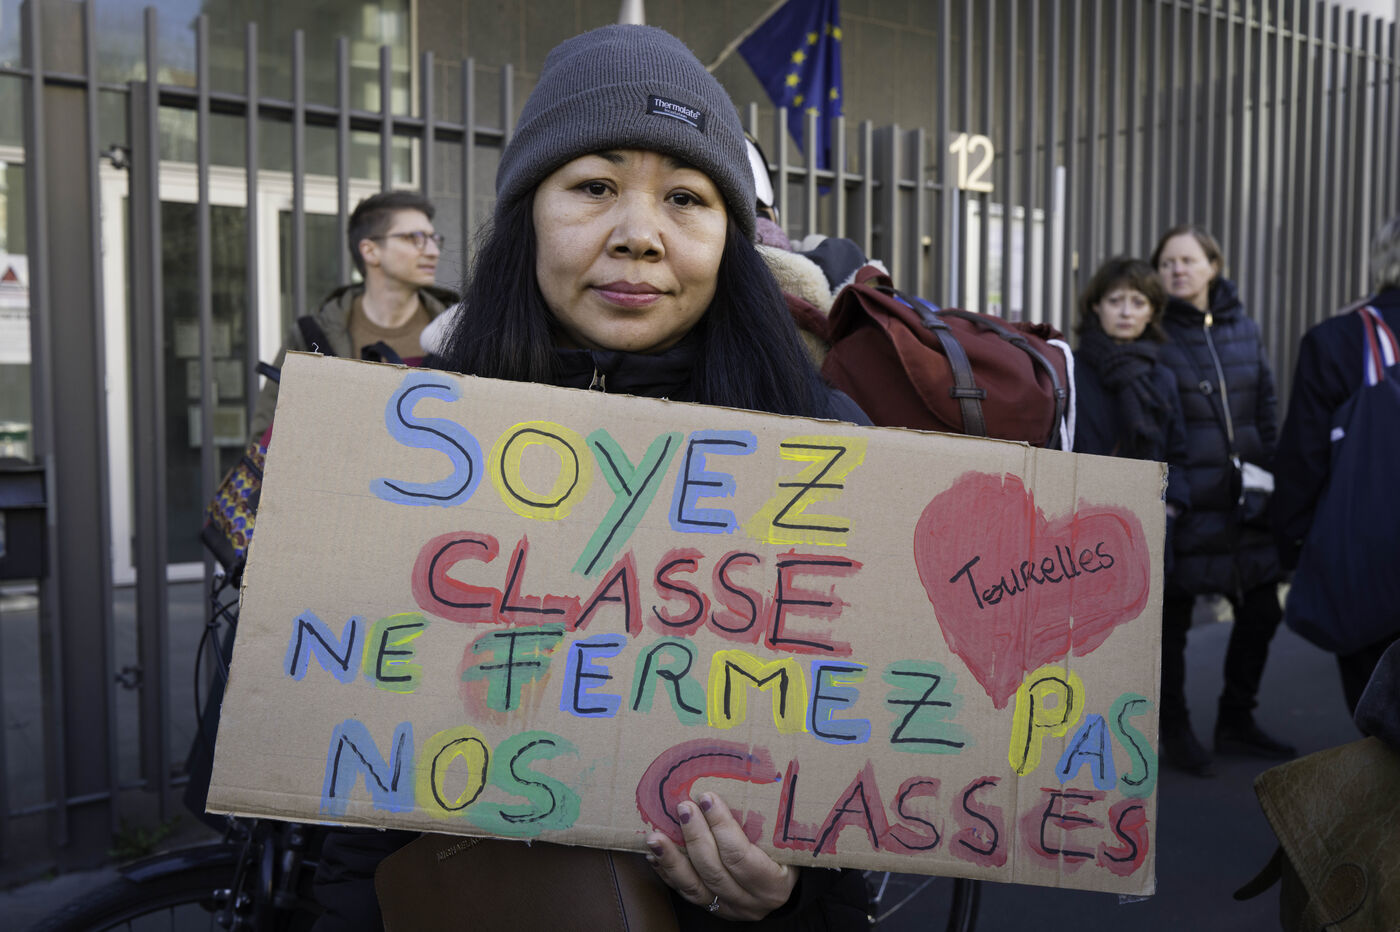 Thermolate
12
SOYEZ
CLASSE
Tourelles
NE FERMEZ PAS
NOS CLASSES